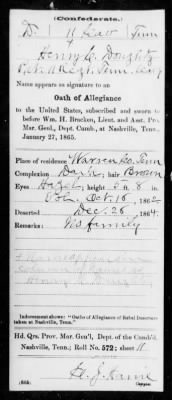 (Confederate.)
D. 11 Cav Tenn
Henry C.
Pvt. 11 Regt. Tenn. Cav
Name appears as signature to an
Oath of Allegiance
to the United States, subscribed and sworn to
before Wm. H. Bracken, Lieut. and Asst. Pro.
Mar. Genl., Dept. Cumb., at Nashville, Tenn.,
January 27, 1865.
Place of residence Warren Co. Tenn
Complexion Dark, hair Brown
Eyes Hazel, height 5 ft. 8 in.
Vol. Oct. 15, 1862
Deserted Dec. 26, 1864.
Remarks: No family
Indorsement shows: "Oaths of Allegiance of Rebel Deserters
taken at Nashville, Tenn."
Hd. Qrs. Prov. Mar. Gen'l, Dept. of the Cumb'd.
Nashville, Tenn.; Roll No. 572; sheet 11
Copyist.